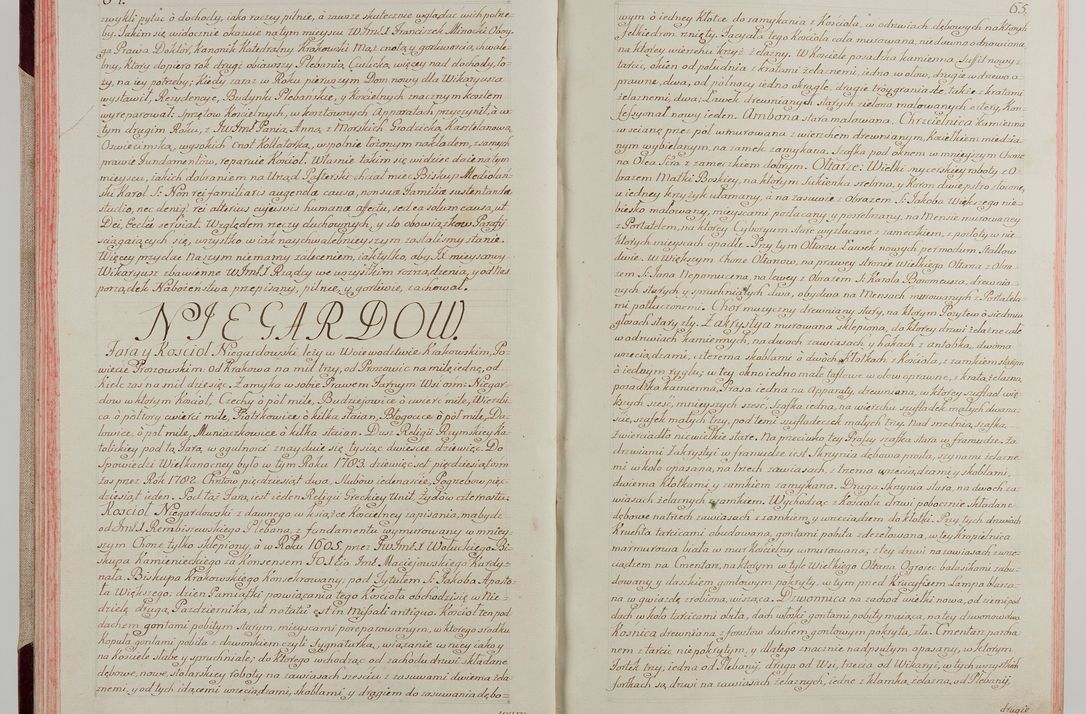 64.
zwykli pytac ò dochody, iako raczey pilnie, à zawsze skutecznie wglądac wich potrze-
by. Takim się widocznie okazuie na tym mieyscu W. Imć X. Franciszek Minocki Oboy-
ga Prawa Doktor, Kanonik Katedralny Krakowski Mąz cnotą y gorliwoscią, chwale-
bny, ktory dopiero rok drugi obiąwszy Plebanią Cudicką więcey nad dochody, ło-
zy, na iey potrzeby; kiedy zaraz w Roku pierwszym Dom nowy dla Wikaryusza
wystawił, Rezydencye, Budynki Plebańskie, y Koscielnych znacznym kosztem
wyreparował: Sprzętow Koscielnych, w kosztownych Apparatach przyczynił, à w
tym drugim Roku, z Jw Imć Panią Anną z Morskich Grodzicką Kasztelanową
Oswiecimską, wysokich Cnot Kollatorką, wspolnie łozonym nakładem, z samych
prawie Fundamentow, reparuie Kosciol. Własnie takim się widziec daie na tym
mieyscu, iakich dobraniem na Urząd Pasterski chciał miec Biskup Mediolań-
ski Karol S: Non rei familiaris augenda causa, non sua Familiæ sustentandæ
studio, nec deniq rei alterius cujusvis humanæ afectu, sed ea solum causa, ut
Dei, Ecclæ serviat. Względem rzeczy duchownych, y do obowiązkow Parafij
sciągaiących się, wszystko w iak naychwalebnieyszym zastalismy stanie.
Więcey przydac Naszym niemamy zaleceniem, iak tylko, aby X. mieyscowy
Wikaryusz zbawienne W. Imć X. Rządcy we wszystkim rozrządzenia, y od Nas
porządek Nabozenstwa przepisany, pilnie, y gorliwie, zachował.
NIEGARDOW.
Fara y Kosciol Niegardowski lezy w Woiewodztwie Krakowskim, Po-
wiecie Proszowskim: Od Krakowa na mil trzy, od Proszowic na milę iednę, od
Kielc zas na mil dziesięc. Zamyka w sobie Prawem Farnym Wsi osm: Niegar-
dow w ktorym Kosciol, Czechy ò poł mile, Budziejowice ò cwierc mile, Wierzbi-
ca ò połtory cwierci mile, Piotrkowice ò kilka staian, Błogocice ò poł mile, Da-
lowice, ò poł mile, Muniaczkowice ò kilka staian. Dusz Religij Rzymskiey Ka-
tolickiey pod tą Farą, w ogulnosc znayduie się, tysiąc dwiescie dziewięc. Do
Spowiedzi Wielkanocney było w tym Roku 1783. dziewięcset piędziesiąt osm
zas przez Rok 1782. Chrztow pięcdziesiąt dwa, Slubow iedenascie, Pogrzebow pięc-
dziesiąt ieden. Pod tąż Farą, iest ieden Religij Greckiey Unit, Zydkow czternastu.
Kosciol Niegardowski z dawnego w ksiązce Koscielney zapisania, ma bydz
od Imć X Rembiszewskiego Plebana, z fundamentu wymurowany w mniey-
szym Chorze tylko sklepiony, à w Roku 1605. przez Jw Imć X Woluckiego Bi-
skupa Kamienieckiego za Konsensem JO. Xcia Imć Maciejowskiego Kardy-
nała Biskupa Krakowskiego Konsekrowany: pod Tytułem S: Jakoba Aposto-
ła Większego: dzień Pamiątki poswięcania tego Koscioła obchodzi się w Nie-
dzielę drugą Pazdziernika, ut notatū est in Missali antiquo. Kosciol ten pod
dachem gontami pobitym starym, mieyscami poreparowanym, w ktorego srodku
Kopuła gontami pobita z dzwonkiem czyli Sygnaturką, wiązanie w niey iako y
na Kosciele słabe y spruchniałe; do ktorego wchodząc od zachodu drzwi składane
dębowe, nowe stolarskiey roboty na zawiasach szesciu z zasuwami dwiema zela-
znemi, y od tych idącemi wrzeciądzami, skoblami, y drągiem do zasuwania dębo-
wym
65.
wym ò iedney kłotce do zamykania z Koscioła, w odrzwiach dębowych na ktorych
Jelkiedron rznięty. Facyata tego Koscioła cała murowana, niedawno odnowiona,
na ktorey wierzchu krzyż zelazny. W Kosciele posadzka kamienna, sufit nowy z
tarcic, okien od południa z kratami zelaznemi, iedno w ołow, drugie w drzewo o-
prawne, dwa, od pułnocy iedno okrągłe, drugie troygranisté, także z kratami
zelaznemi, dwa; Ławek drewnianych starych zielono malowanych cztery, Kon-
fesyonał nowy ieden. Ambona stara malowana. Chrzcielnica kamienna
w scianę przez poł wmurowana z wierzchem drewnianym, Kociełkiem miedzia-
nym wybielanym, na zamek zamykana. Szafka pod oknem w mnieyszym Chorze
na Olea Scra z zameczkiem dobrym. Ołtarze: Wielki snycerskiey roboty z O-
brazem Matki Boskiey, na ktorym sukienka srebrna, y koron dwie pstro złocone,
w iedney krzyżyk ułamany, à na zasuwie z Obrazem S: Jakoba Większego nie-
biesko malowany, mieyscami pozłacany y posrebrzany, na Mensie murowaney
z Portatelem, na ktorey Cyborium stare wyzłacane z zameczkiem, z pozłoty w nie-
ktorych mieyscach opadłe. Przy tym Ołtarzu Ławek nowych per modum stallow
dwie. W Większym Chorze Ołtarzow, na prawey stronie Wielkiego Ołtarza z Obra-
zem S: Jana Nepomucena, na lewey z Obrazem S: Karola Boromeusza, drewnia-
nych starych y spruchniałych dwa, obydwa na Mensach murowanych z Portatela-
mi potłuczonemi. Chor muzyczny drewniany stary, na ktorym Pozytew ò siedmiu
głosach stary zły. Zakrystya murowana sklepiona, do ktorey drzwi zelazne całe
w odrzwiach kamiennych, na dwoch zawiasach, y hakach z antabką, dwoma
wrzeciądzami, czterema skoblami ò dwoch Kłotkach z Koscioła, z zamkiem starym
ò iednym ryglu; w tey okno iedno małe taflowe w ołow oprawne, z kratą zelazną,
posadzka kamienna, Prasa iedna na Apparaty, drewniana, w ktorey suflad wię-
kszych szesc, mnieyszych szesc, Szafka iedna, na wierzchu szufladek małych dwana-
scie, szafek małych trzy, pod temi szufladeczek małych trzy. Nad srednią, szafką,
zwierciadło niewielkie stare. Na przeciwko tey Prasy szafka stara w framudze. Za
drzwiami Zakrystyi w framudze iest Skrzynia dębowa prosta, szynami zelazne-
mi w koło opasana, na trzech zawiasach, z trzema wrzeciądzami y skoblami,
dwiema kłotkami y zamkiem zamykana. Druga Skrzynia stara, na dwoch za-
wiasach zelaznych z zamkiem. Wychodząc z Koscioła drzwi poboczne składane
dębowe na trzech zawiasach z zamkiem, y wrzeciądzem do kłotki. Przy tych drzwiach
Kruchta tarcicami obudowana, gontami pobita zdezelowana, w tey Kropielnica
marmurowa biała w mur Koscielny wmurowana; z tey drzwi na zawiasach z wrze-
ciądzem na Cmentarz, na ktorym w tyle Wielkiego Ołtarza Ogroiec balasikami zabu-
dowany y daszkiem gontowym pokryty, w tym przed Krucyfixem Lampa blasza-
na w gwiazdę zrobiona, wisząca. Dzwonnica na zachod wielki nowa, od ziemi pod
dach w koło tarcicami obita, dach włoski, gontami pobity maiąca, na tey dzwonow dwa.
Kosnica drewniana z forsztow dachem gontowym pokryta, zła. Cmentarz parka-
nem z tarcic niepokrytym, y dlatego znacznie nadpsutym opasany, w ktorym
Fortek trzy, iedna od Plebanij, druga od Wsi, trzecia od Wikaryi, w tych wszystkich
fortkach są drzwi na zawiasach zelaznych, iedne z klamką zelazną, od Plebanij,
drugie